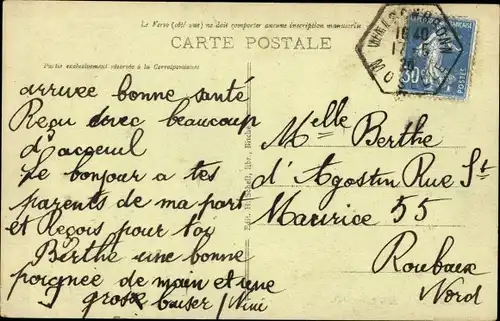 Le Verso (côté vue) ne doit comporter aucune inscription manuscrite
CARTE POSTALE
Partie exclusivement réservée à la Correspondance
arrivee bonne santé
Reçu avec beaucoup
d'acceuil
Le bonjour a tes
parents de ma part
et Reçois pour toi
Berthe une bonne
poignee de main et une
gros baiser / Nini
Melle Berthe
d'Agostin Rue St
Maurice 55
Roubaix
Nord
16 40
30
POSTES